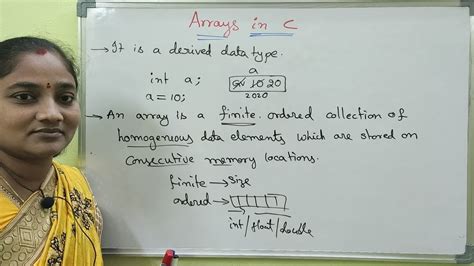 Arrays in C
→ It is a derived data type.
a
int a; 10 20
a=10; 2020
→ An array is a finite ordered collection of
homogeneous data elements which are stored on
consecutive memory locations.
finite → size
ordered →
int/float/double